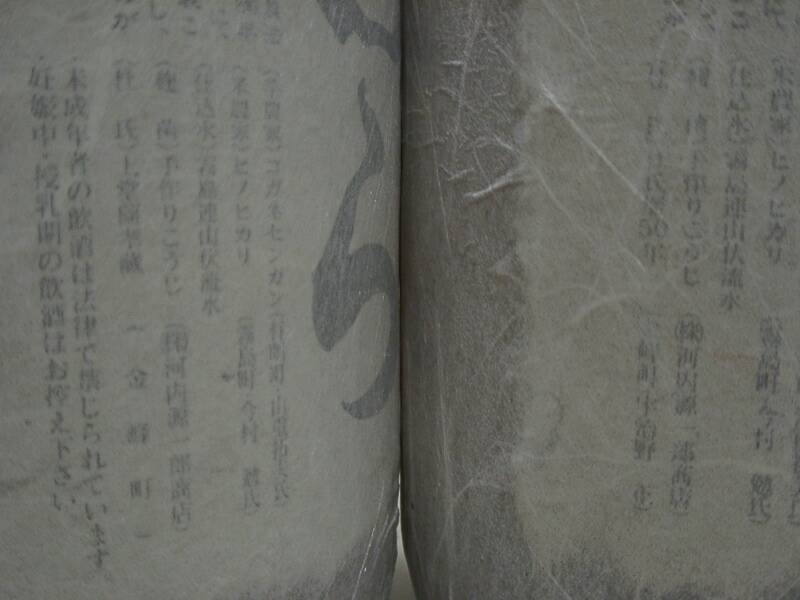 (米農家)ヒノヒカリ(霧島町 今村 勉氏)
(仕込水)霧島連山伏流水
手作りこうじ(㈱河内源一郎商店)
杜氏歴50年
ら
(芋農家)コガネセンガン
(米農家)ヒノヒカリ(霧島町 今村 勉氏)
(仕込水)霧島連山伏流水
(種 麹)手作りこうじ(㈱河内源一郎商店)
(杜 氏)上堂薗孝蔵(金峰町)
・未成年者の飲酒は法律で禁じられています。
・妊娠中・授乳期の飲酒はお控え下さい。